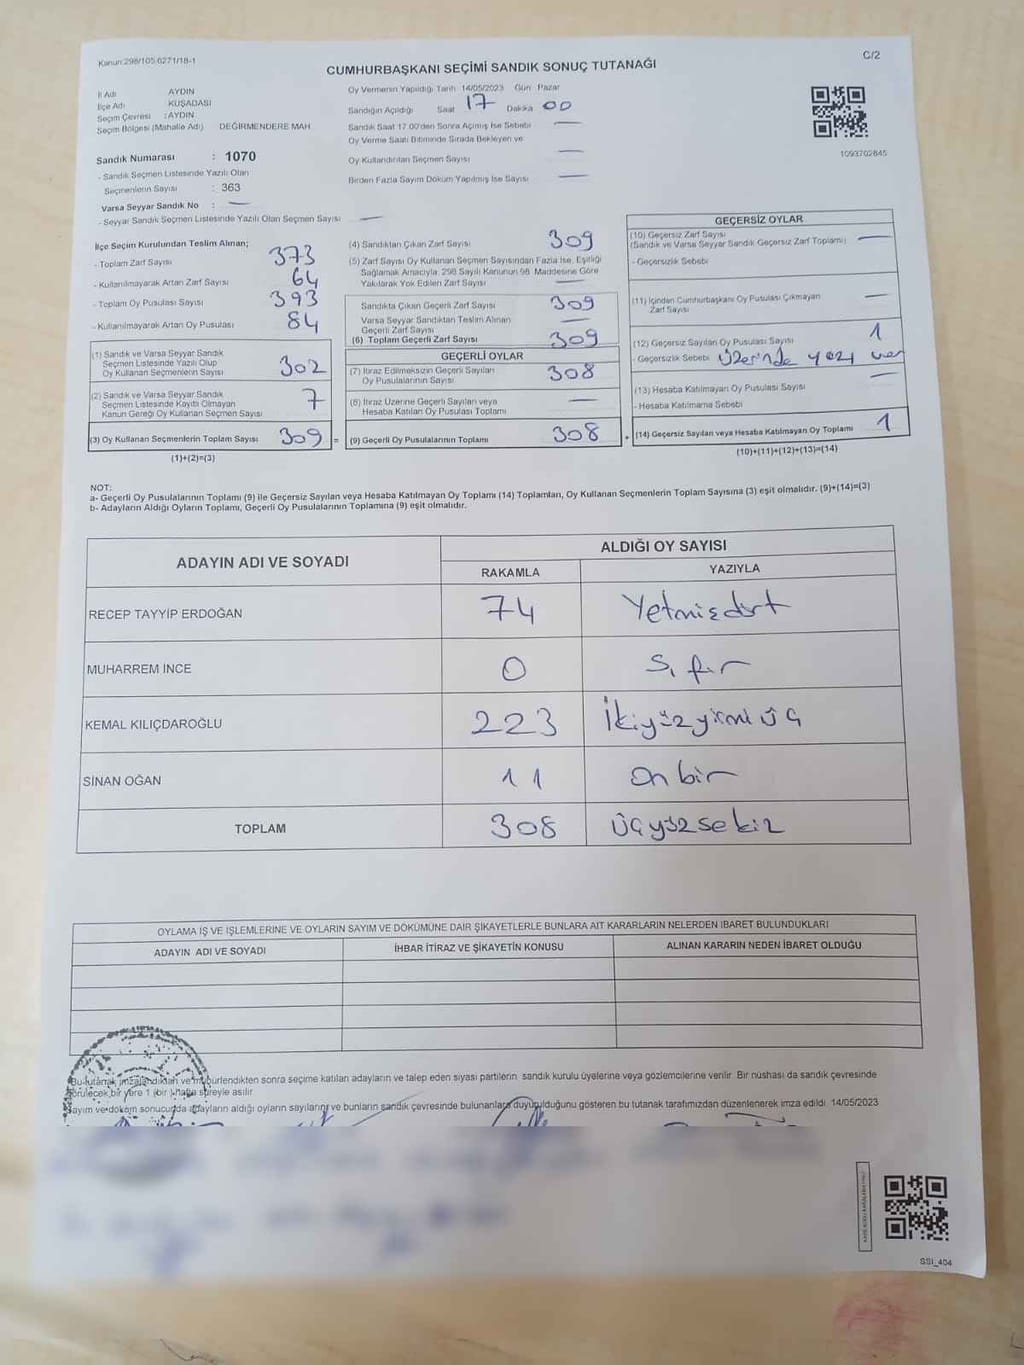 Kanun:298/105.0271/18-1
C/2
CUMHURBAŞKANI SEÇİMİ SANDIK SONUÇ TUTANAĞI
İl Adı AYDIN
İlçe Adı KUŞADASI
Seçim Çevresi : AYDIN
Seçim Bölgesi (Mahalle Adı) DEĞİRMENDERE MAH
Sandık Numarası : 1070
- Sandık Seçmen Listesinde Yazılı Olan
Seçmenlerin Sayısı : 363
Varsa Seyyar Sandık No : —
- Seyyar Sandık Seçmen Listesinde Yazılı Olan Seçmen Sayısı —
Oy Vermenin Yapıldığı Tarih 14/05/2023 Gün Pazar
Sandığın Açıldığı Saat 17 Dakika 00
Sandık Saat 17.00'den Sonra Açılmış İse Sebebi —
Oy Verme Saati Bitiminde Sırada Bekleyen ve
Oy Kullandırılan Seçmen Sayısı —
Birden Fazla Sayım Döküm Yapılmış İse Sayısı —
1093702845
İlçe Seçim Kurulundan Teslim Alınan;
- Toplam Zarf Sayısı 373
- Kullanılmayarak Artan Zarf Sayısı 64
- Toplam Oy Pusulası Sayısı 393
- Kullanılmayarak Artan Oy Pusulası 84
(1) Sandık ve Varsa Seyyar Sandık
Seçmen Listesinde Yazılı Olup
Oy Kullanan Seçmenlerin Sayısı 302
(2) Sandık ve Varsa Seyyar Sandık
Seçmen Listesinde Kayıtlı Olmayan
Kanun Gereği Oy Kullanan Seçmen Sayısı 7
(3) Oy Kullanan Seçmenlerin Toplam Sayısı 309 =
(1)+(2)=(3)
(4) Sandıktan Çıkan Zarf Sayısı 309
(5) Zarf Sayısı Oy Kullanan Seçmen Sayısından Fazla İse, Eşitliği
Sağlamak Amacıyla, 298 Sayılı Kanunun 98. Maddesine Göre
Yakılarak Yok Edilen Zarf Sayısı —
Sandıkta Çıkan Geçerli Zarf Sayısı 309
Varsa Seyyar Sandıktan Teslim Alınan
Geçerli Zarf Sayısı —
(6) Toplam Geçerli Zarf Sayısı 309
GEÇERLİ OYLAR
(7) İtiraz Edilmeksizin Geçerli Sayılan
Oy Pusulalarının Sayısı 308
(8) İtiraz Üzerine Geçerli Sayılan veya
Hesaba Katılan Oy Pusulası Toplamı —
(9) Geçerli Oy Pusulalarının Toplamı 308 +
GEÇERSİZ OYLAR
(10) Geçersiz Zarf Sayısı —
(Sandık ve Varsa Seyyar Sandık Geçersiz Zarf Toplamı)
- Geçersizlik Sebebi
(11) İçinden Cumhurbaşkanı Oy Pusulası Çıkmayan
Zarf Sayısı —
(12) Geçersiz Sayılan Oy Pusulası Sayısı 1
- Geçersizlik Sebebi Üzerinde yazı var
(13) Hesaba Katılmayan Oy Pusulası Sayısı —
- Hesaba Katılmama Sebebi
(14) Geçersiz Sayılan veya Hesaba Katılmayan Oy Toplamı 1
(10)+(11)+(12)+(13)=(14)
NOT:
a- Geçerli Oy Pusulalarının Toplamı (9) ile Geçersiz Sayılan veya Hesaba Katılmayan Oy Toplamı (14) Toplamları, Oy Kullanan Seçmenlerin Toplam Sayısına (3) eşit olmalıdır. (9)+(14)=(3)
b- Adayların Aldığı Oyların Toplamı, Geçerli Oy Pusulalarının Toplamına (9) eşit olmalıdır.
ADAYIN ADI VE SOYADI
ALDIĞI OY SAYISI
RAKAMLA YAZIYLA
RECEP TAYYİP ERDOĞAN 74 Yetmişdört
MUHARREM İNCE 0 Sıfır
KEMAL KILIÇDAROĞLU 223 İkiyüzyirmi üç
SİNAN OĞAN 11 On bir
TOPLAM 308 Üçyüzsekiz
OYLAMA İŞ VE İŞLEMLERİNE VE OYLARIN SAYIM VE DÖKÜMÜNE DAİR ŞİKAYETLERLE BUNLARA AİT KARARLARIN NELERDEN İBARET BULUNDUKLARI
ADAYIN ADI VE SOYADI İHBAR İTİRAZ VE ŞİKAYETİN KONUSU ALINAN KARARIN NEDEN İBARET OLDUĞU
Bu tutanak imzalandıktan ve mühürlendikten sonra seçime katılan adayların ve talep eden siyasi partilerin sandık kurulu üyelerine veya gözlemcilerine verilir. Bir nüshası da sandık çevresinde
görülecek bir yere 1 (bir) hafta süreyle asılır
Sayım ve döküm sonucunda adayların aldığı oyların sayılarını ve bunların sandık çevresinde bulunanlara duyurulduğunu gösteren bu tutanak tarafımızdan düzenlenerek imza edildi 14/05/2023
SSI_404